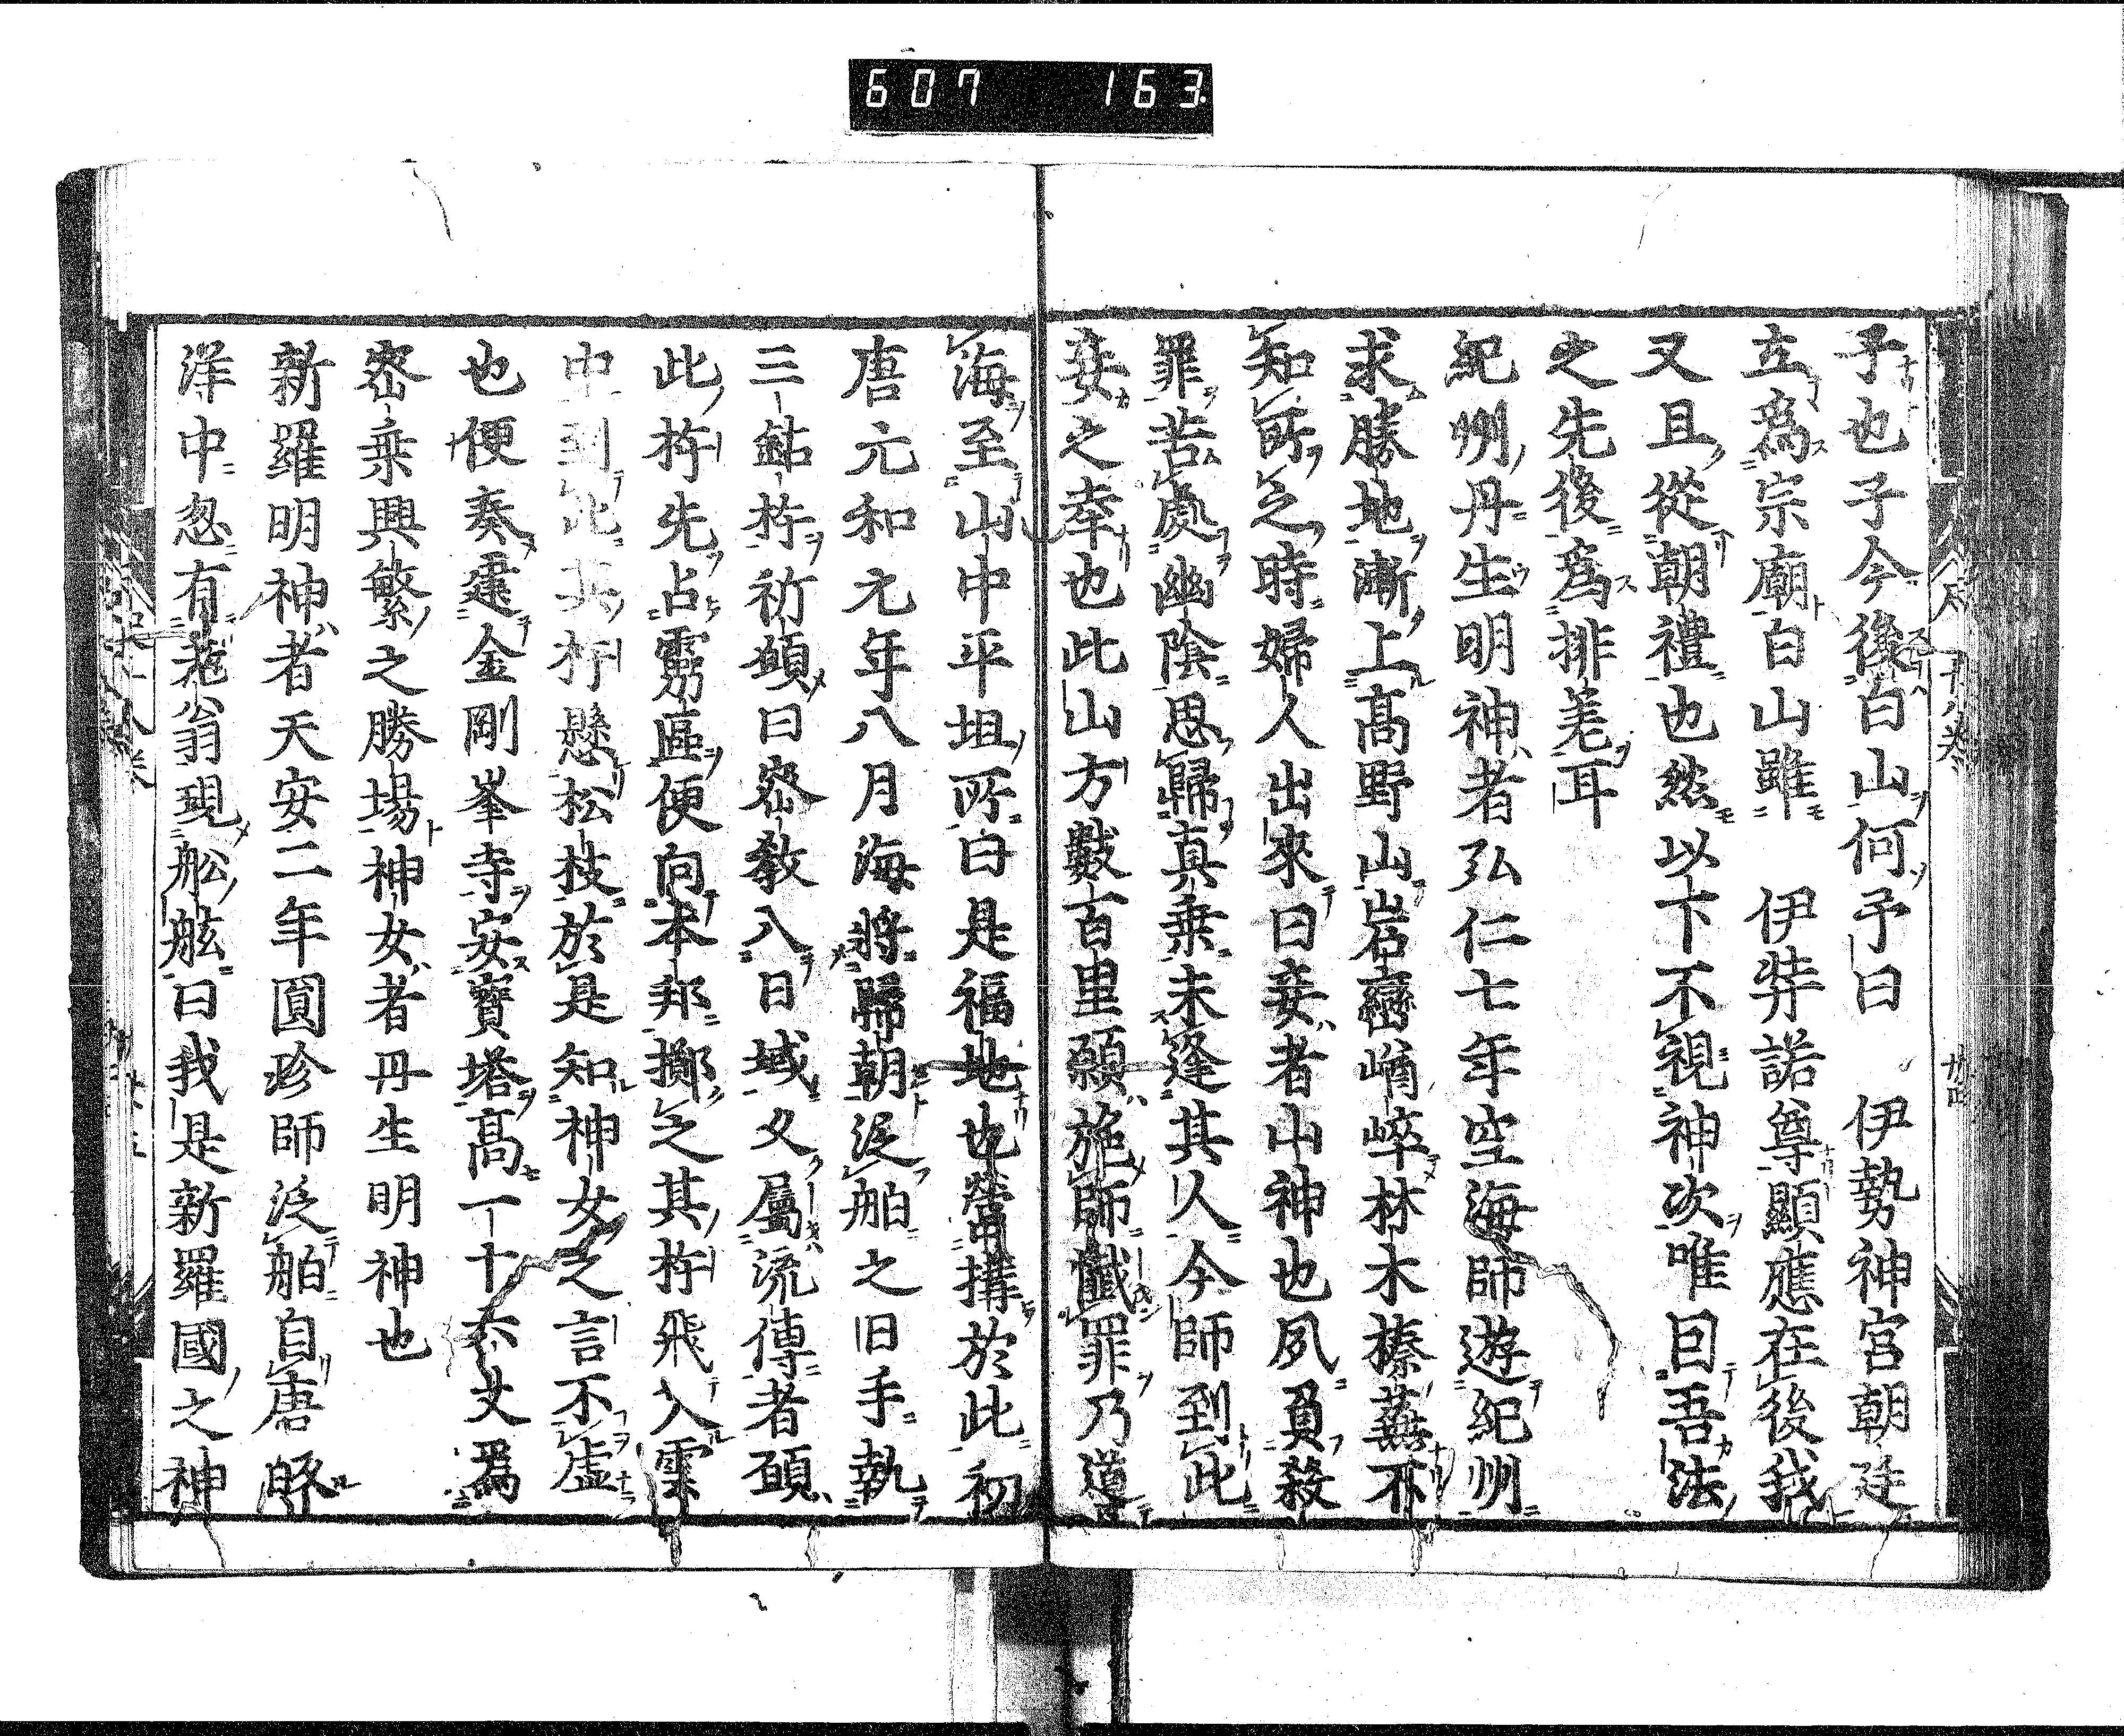 607 163
子也子今後白山何予曰 伊勢神宮朝廷
立爲宗廟白山雖 伊弉諾尊顯應在後我
又且從朝禮也然以下不視神次唯曰吾法
之先後爲排羌耳
紀州丹生明神者弘仁七年空海師遊紀州
求勝地漸上髙野山岩巒崷崒林木榛蕪不
知所之時婦人出來曰妾者山神也夙負殺
罪苦處幽陰思歸真乗未逢其人今師到此
妾之幸也此山方數百里願施師懺罪乃導
海至山中平坦所曰是福地也營搆於此初
唐元和元年八月海將歸朝泛舶之旧手執
三鈷杵祈願曰宻教八日域又屬流傳者頋
此杵先占靈區便向本邦擲之其杵飛入雲
中到此其杵懸松枝於是知神女之言不虚
也便奏建金剛峯寺安寳塔髙一十六丈爲
宻乗興繁之勝場神女者丹生明神也
新羅明神者天安二年圓珍師泛舶自唐皈
洋中忽有老翁現舩舷曰我是新羅國之神